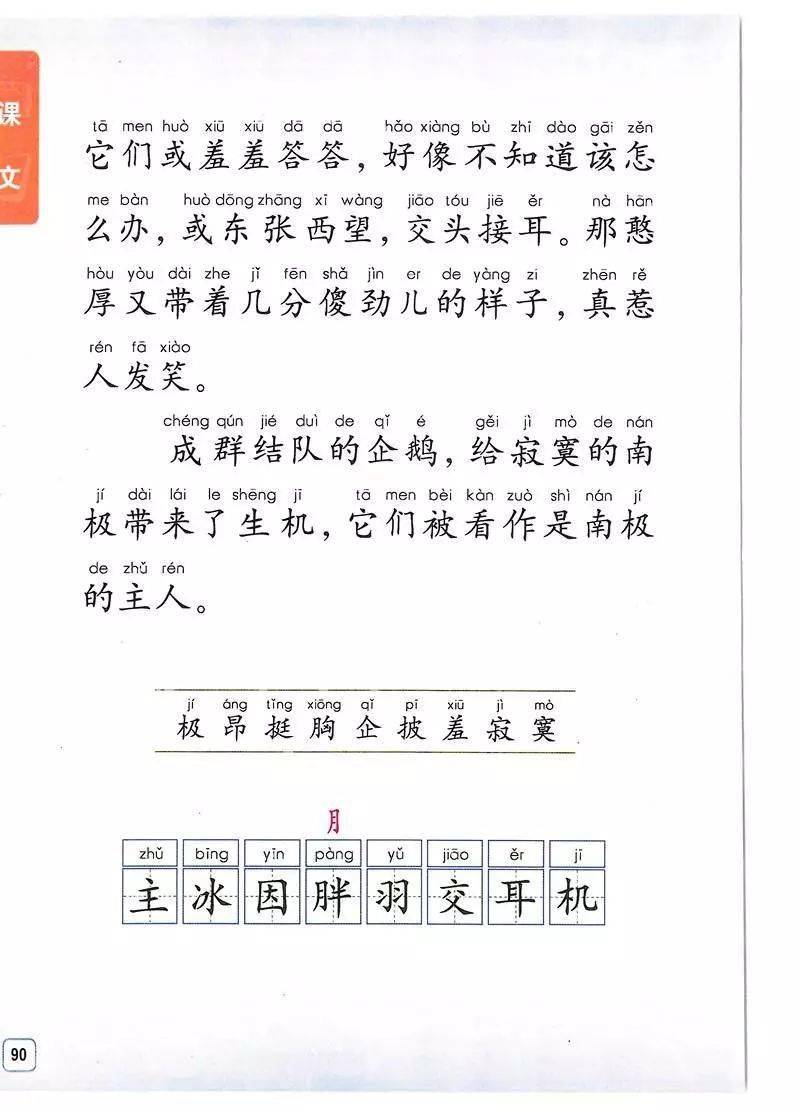 课
文
tā men huò xiū xiu dā dā hǎo xiàng bù zhī dào gāi zěn
它们或羞羞答答，好像不知道该怎
me bàn huò dōng zhāng xī wàng jiāo tóu jiē ěr nà hān
么办，或东张西望，交头接耳。那憨
hòu yòu dài zhe jǐ fēn shǎ jìn er de yàng zi zhēn rě
厚又带着几分傻劲儿的样子，真惹
rén fā xiào
人发笑。
chéng qún jié duì de qǐ é gěi jì mò de nán
成群结队的企鹅，给寂寞的南
jí dài lái le shēng jī tā men bèi kàn zuò shì nán jí
极带来了生机，它们被看作是南极
de zhǔ rén
的主人。
jí áng tǐng xiōng qǐ pī xiū jì mò
极 昂 挺 胸 企 披 羞 寂 寞
月
zhǔ bīng yīn pàng yǔ jiāo ěr jī
主 冰 因 胖 羽 交 耳 机
90